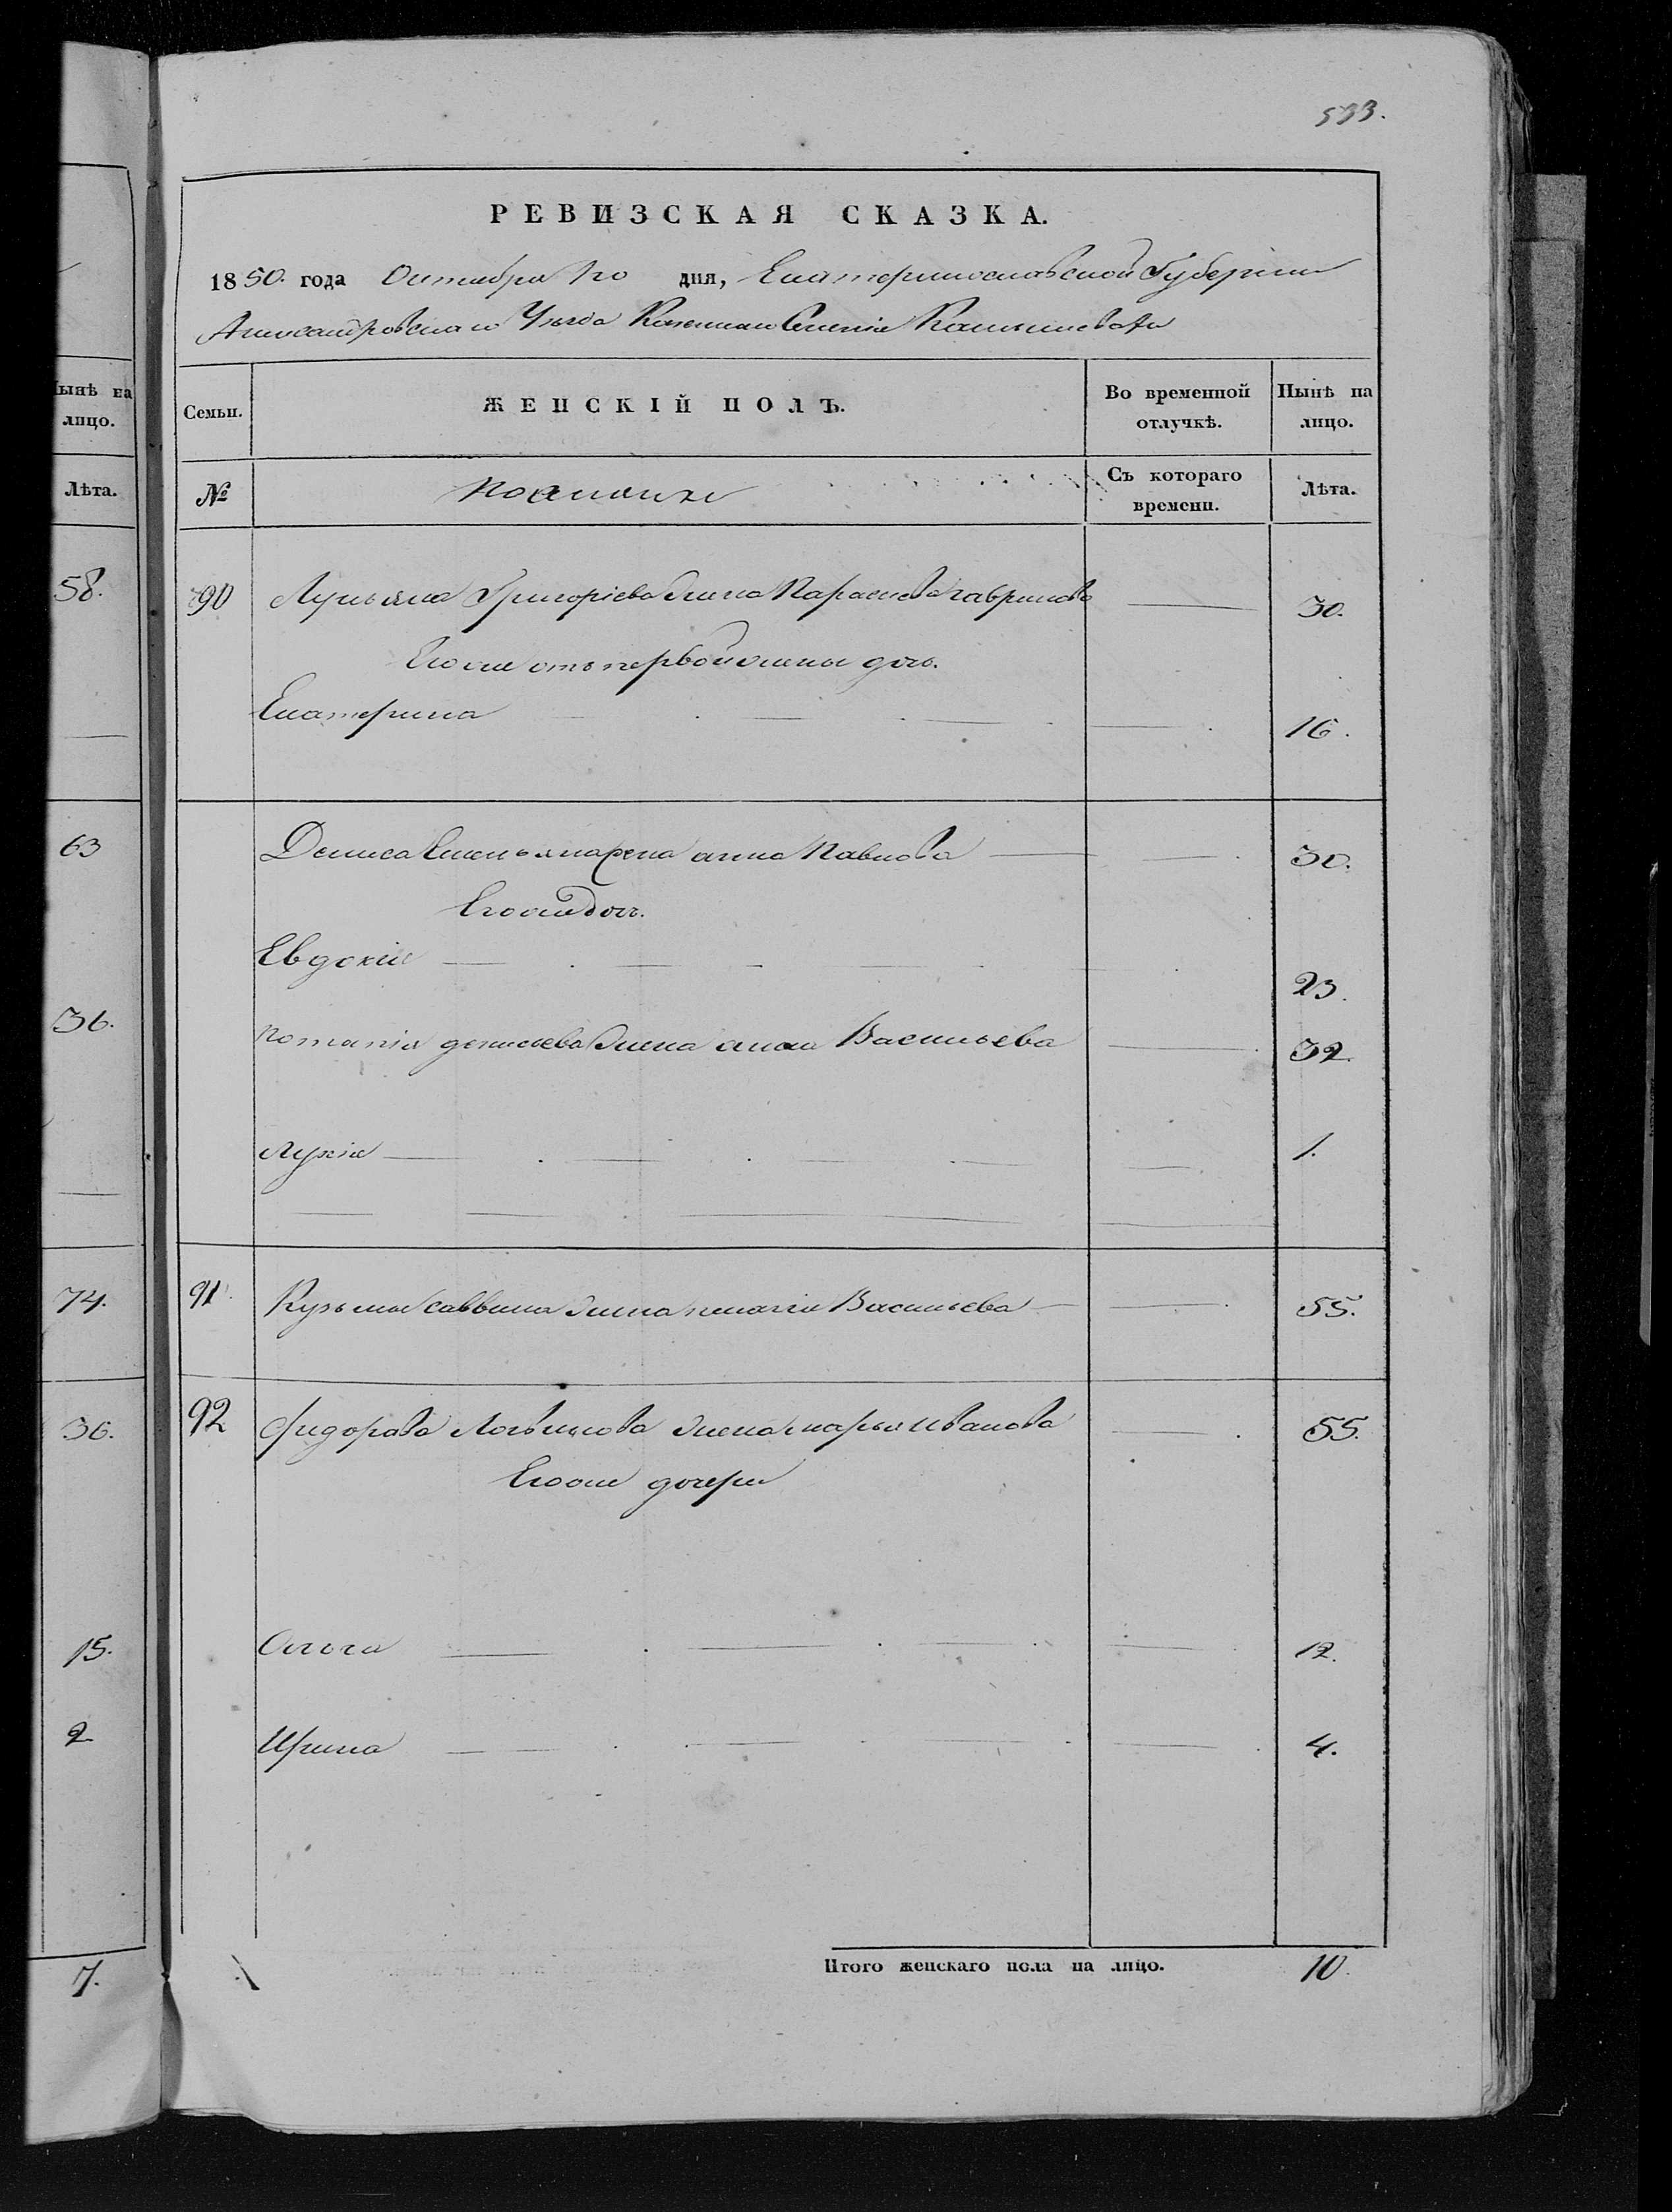 533.
РЕВИЗСКАЯ СКАЗКА.
1850. года Октября 1го дня, Екатеринославской Губерніи
Александровскаго Уѣзда Казеннаго Селенія
Семьи. ЖЕНСКІЙ ПОЛЪ. Во временной отлучкѣ. Нынѣ на лицо.
№ Съ котораго времени. Лѣта.
ынѣ на
лицо.
Лѣта.
58.
63
36.
74.
36.
15.
2
7.
90 Лукьяна Григорієва жена Параскева Гаврилова 30.
Его же отъ первой жены дочь.
Екатерина 16.
Дениса анна Павлова 30.
Его же дочь.
Евдокія 23.
денисіева жена анна Васильева 32.
Лукія 1.
91. Кузьмы саввина жена пелагія Васильева 55.
92 Фидорова жена марья Иванова 55.
Его же дочери
Ольга 12.
Ирина 4.
Итого женскаго пола на лицо. 10.